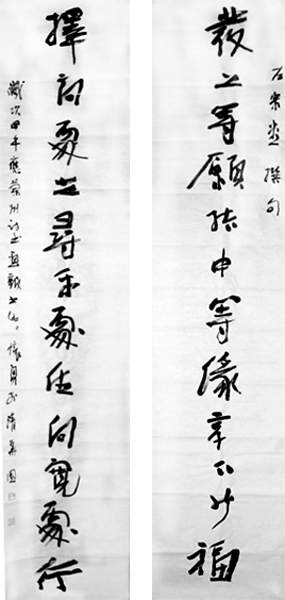 左宗棠撰句
發上等願結中等緣享下等福
擇高處立尋平處住向寬處行
歲次甲午 清華園